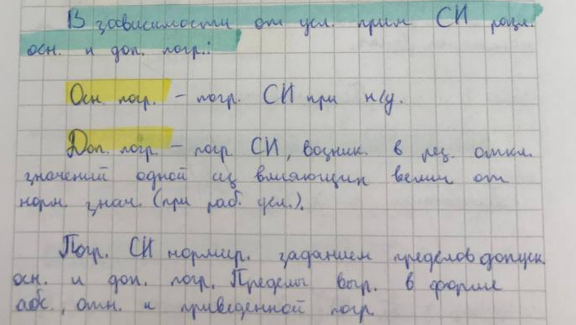 В зависимости от усл. прим СИ разл.
осн. и доп. погр.:
Осн. погр. – погр. СИ при н/у.
Доп. погр – погр СИ, возник. в рез. откл.
значений одной из влияющих велич от
норм. знач. (при раб. усл.).
Погр. СИ нормир. заданием пределов допуск
осн. и доп. погр. Пределы выр. в форме
абс., отн. и приведенной погр